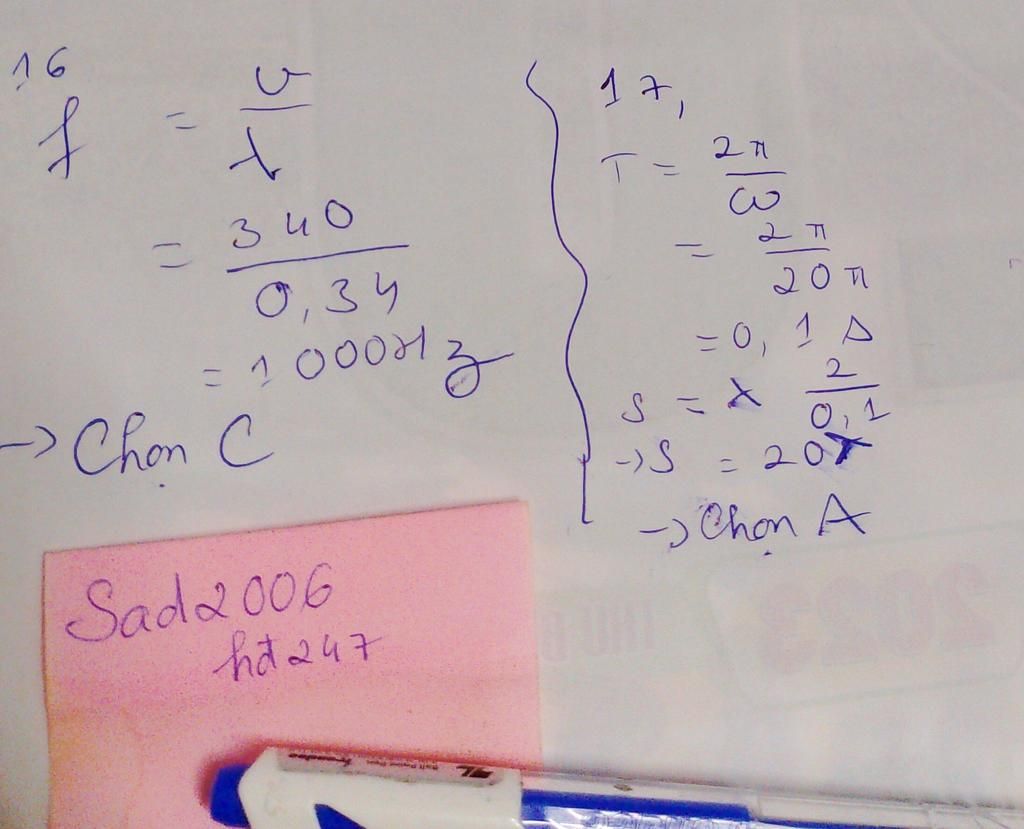 16
f = v/λ
= 340/0,34
= 1000Hz
→ Chọn C
17,
T = 2π/ω
= 2π/20π
= 0,1 s
S = λ 2/0,1
→ S = 20λ
→ Chọn A
Sad2006
hđ247
2023